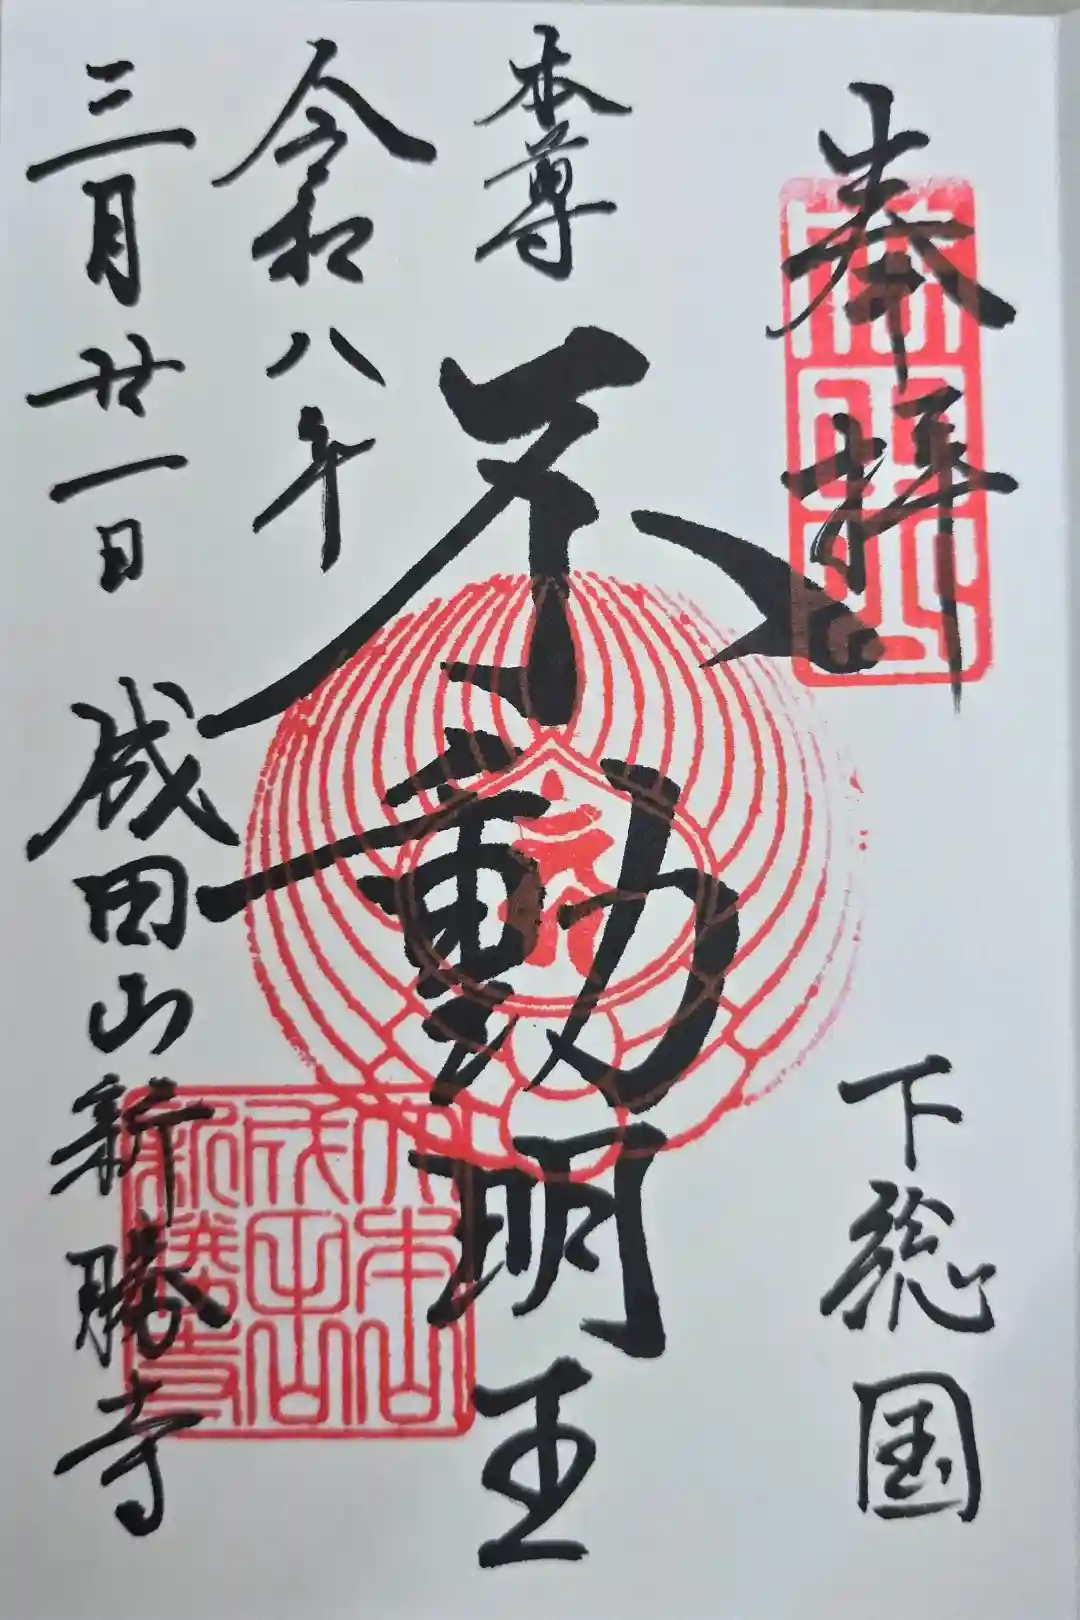 奉拝
下総国
本尊
不動明王
令和八年
三月廿一日
成田山新勝寺
大本山
成田山
新勝寺